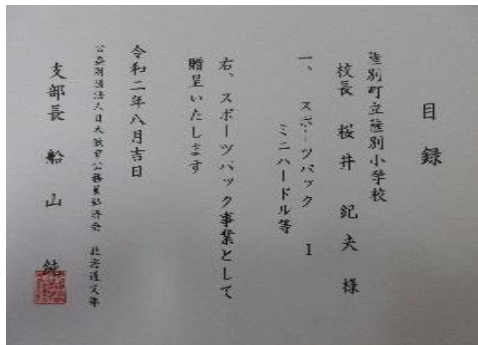 目録
陸別町立陸別小学校
校長 桜井 紀夫 様
一、スポーツパック I
ミニハードル等
右、スポーツパック事業として
贈呈いたします
令和二年八月吉日
公益財団法人日本教育公務員弘済会 北海道支部
支部長 船山 純